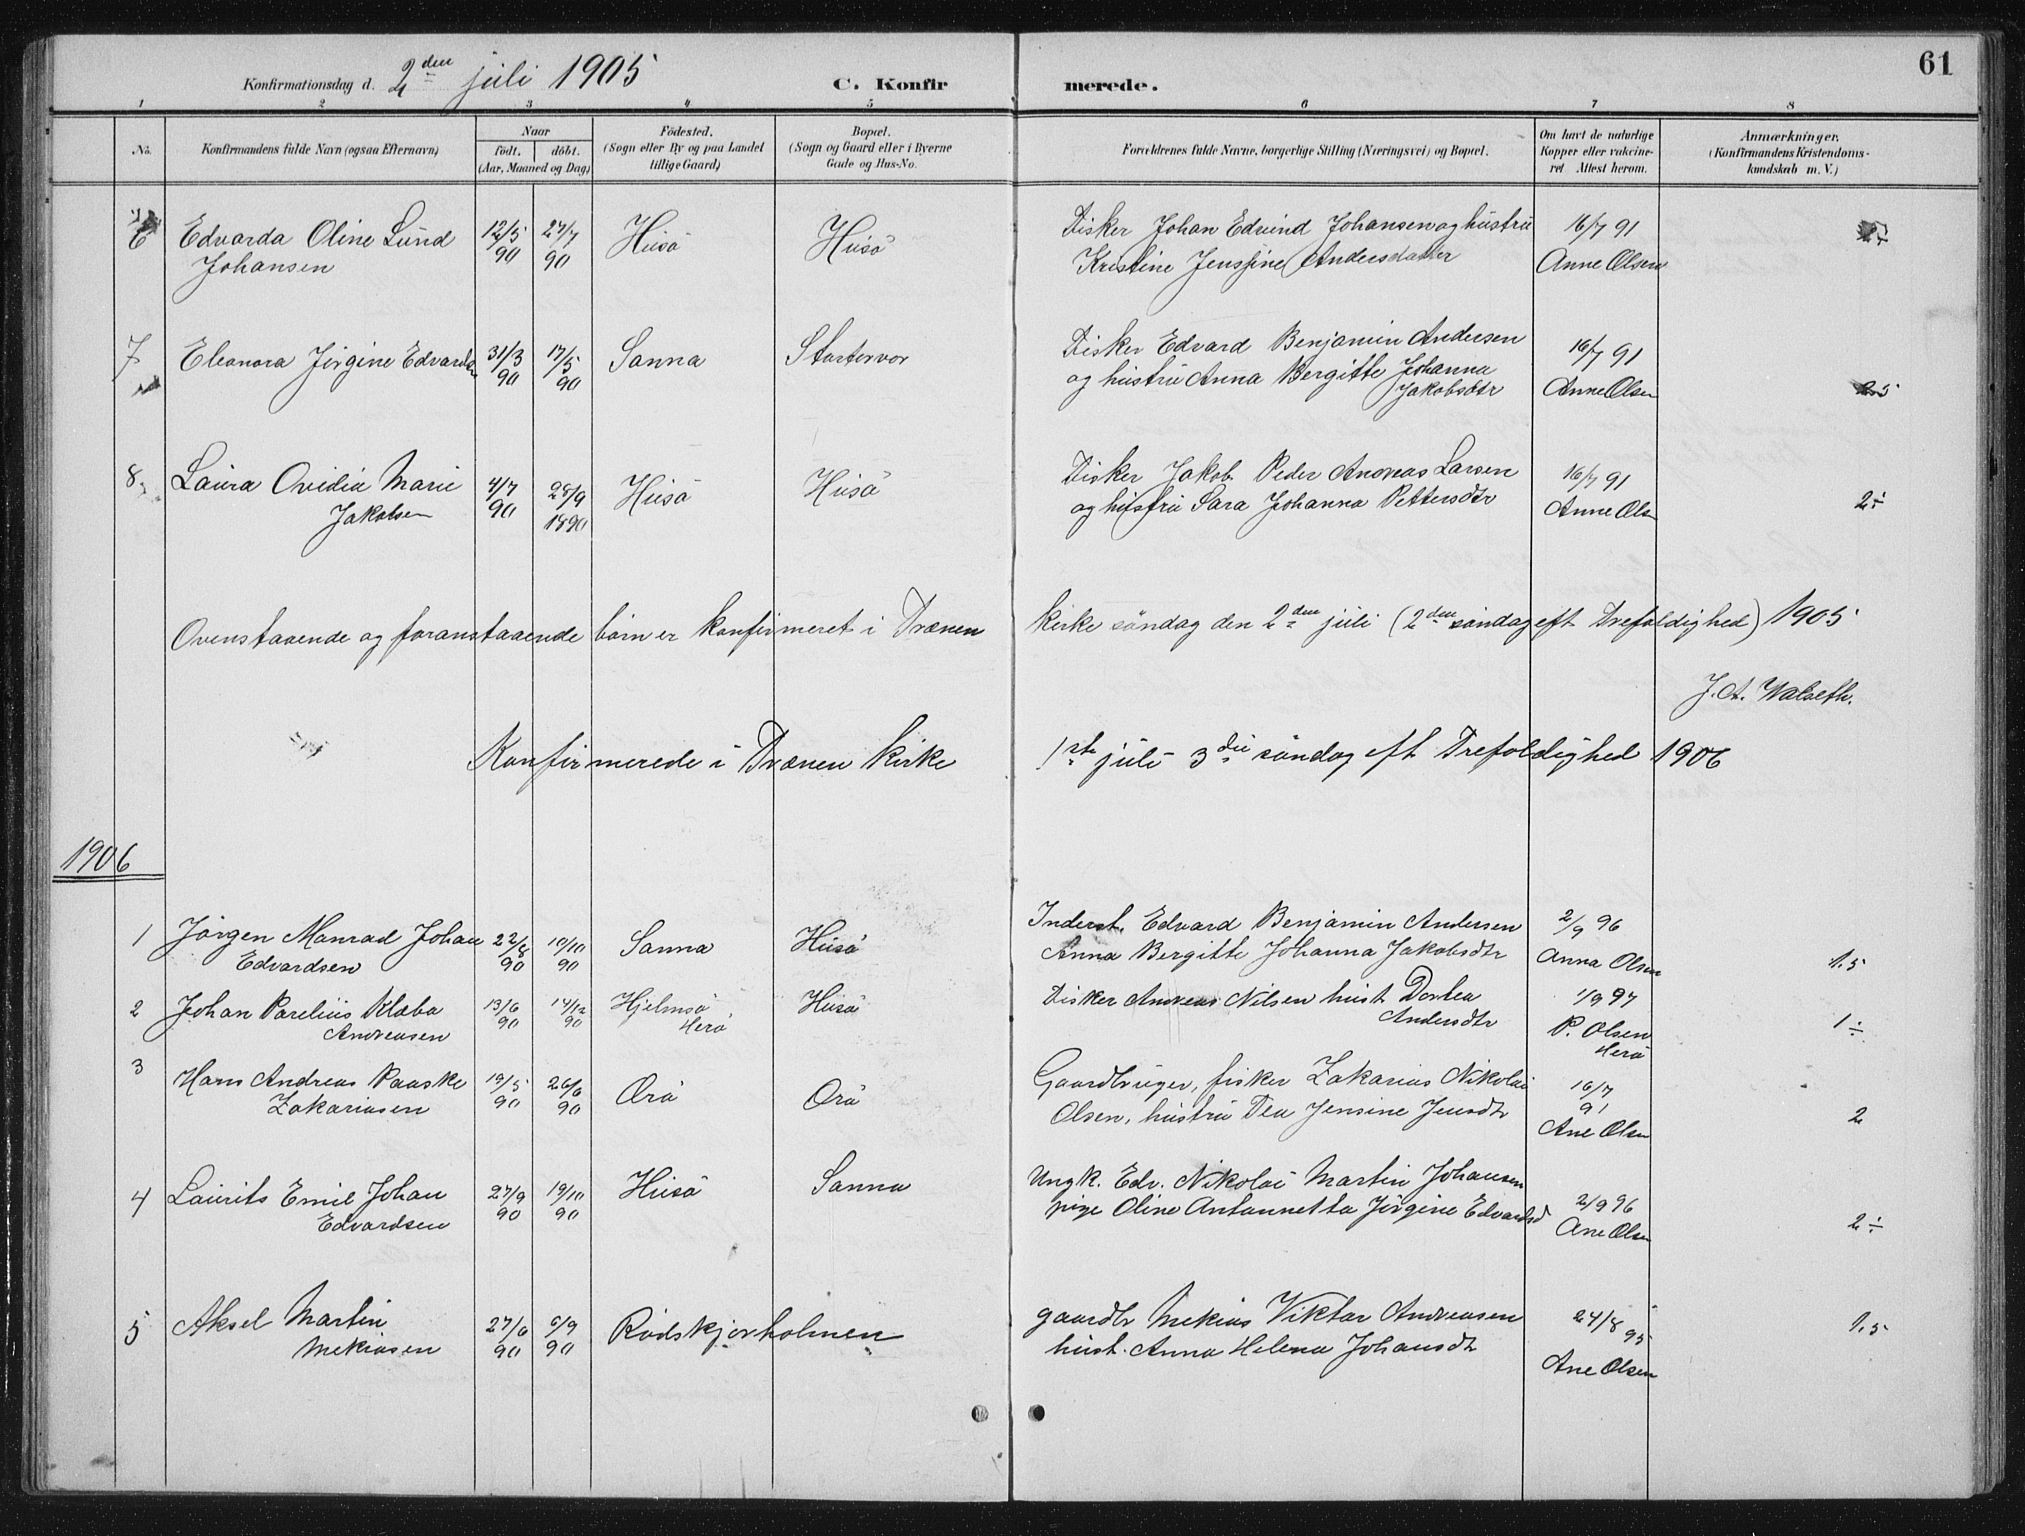 61
Konfirmationsdag d. 2den juli 1905
C. Konfirmerede.
1 2 3 4 5 6 7 8
No.
Konfirmandens fulde Navn (ogsaa Efternavn)
Naar
født. døbt.
(Aar, Maaned og Dag)
Fødested.
(Sogn eller By og paa Landet
tillige Gaard)
Bopæl.
(Sogn og Gaard eller i Byerne
Gade og Hus-No.
Forældrenes fulde Navne, borgerlige Stilling (Næringsvei) og Bopæl.
Om havt de naturlige
Kopper eller vakcine-
ret Attest herom.
Anmærkninger.
(Konfirmandens Kristendoms-
kundskab m. V.)
6 Edvarda Oline Lund 12/5 27/7 Husö Husö Fisker Johan Edvind Johansen og hustru 16/7 91
Johansen 90 90 Kristine Jensine Andersdatter Anne Olsen
7 Eleonora Jørgine Edvardsen 31/3 17/5 Sanna Fisker Edvard Benjamin Andersen 16/7 91
90 90 og hustru Anna Bergitte Johanna Anne Olsen
Jakobsdtr
8 Laura Ovidia Marie 4/7 28/9 Husö Husö Fisker Jakob Peder Andreas Larsen 16/7 91
Jakobsen 90 1890 og hustru Sara Johanna Pettersdtr Anne Olsen 2÷
Ovenstaaende og foranstaaende börn er konfirmeret i Trænen kirke söndag den 2den juli (2den söndag eft Trefoldighed) 1905
J. A. Walseth.
Konfirmerede i Trænen kirke 1ste juli 3die söndag eft Trefoldighed 1906
1906
1 Jörgen Monrad Johan 22/8 19/10 Sanna Husö Inderst. Edvard Benjamin Andersen 2/9 96
Edvardsen 90 90 Anna Bergitte Johanna Jakobsdtr Anna Olsen 1.5
2 Johan Parelius Klæbo 13/6 14/12 Hjelmsö Husö Fisker Andreas Nilsen hust Dortea 1/9 97
Andreasen 90 90 Herö Andersdtr P. Olsen 1÷
Herö
3 Hans Andreas Paaske 19/5 26/6 Örö Örö Gaardbruger, fisker Zakarias Nikolai 16/7
Zakariasen 90 90 Olsen, hustru Tea Jensine Jensdtr 91 2
Ane Olsen
4 Laurits Emil Johan 27/9 19/10 Husö Sanna Ungk. Edv. Nikolai Martin Johansen 2/9 96
Edvardsen 90 90 pige Oline Antonnetta Jörgine Edvardsd Ane Olsen 2÷
5 Aksel Martin 27/6 6/9 Rödskjærholmen gaardbr Mekias Viktor Andreasen 24/8 95 1.5
Mekiasen 90 90 hust. Anna Helena Johansdtr Ane Olsen